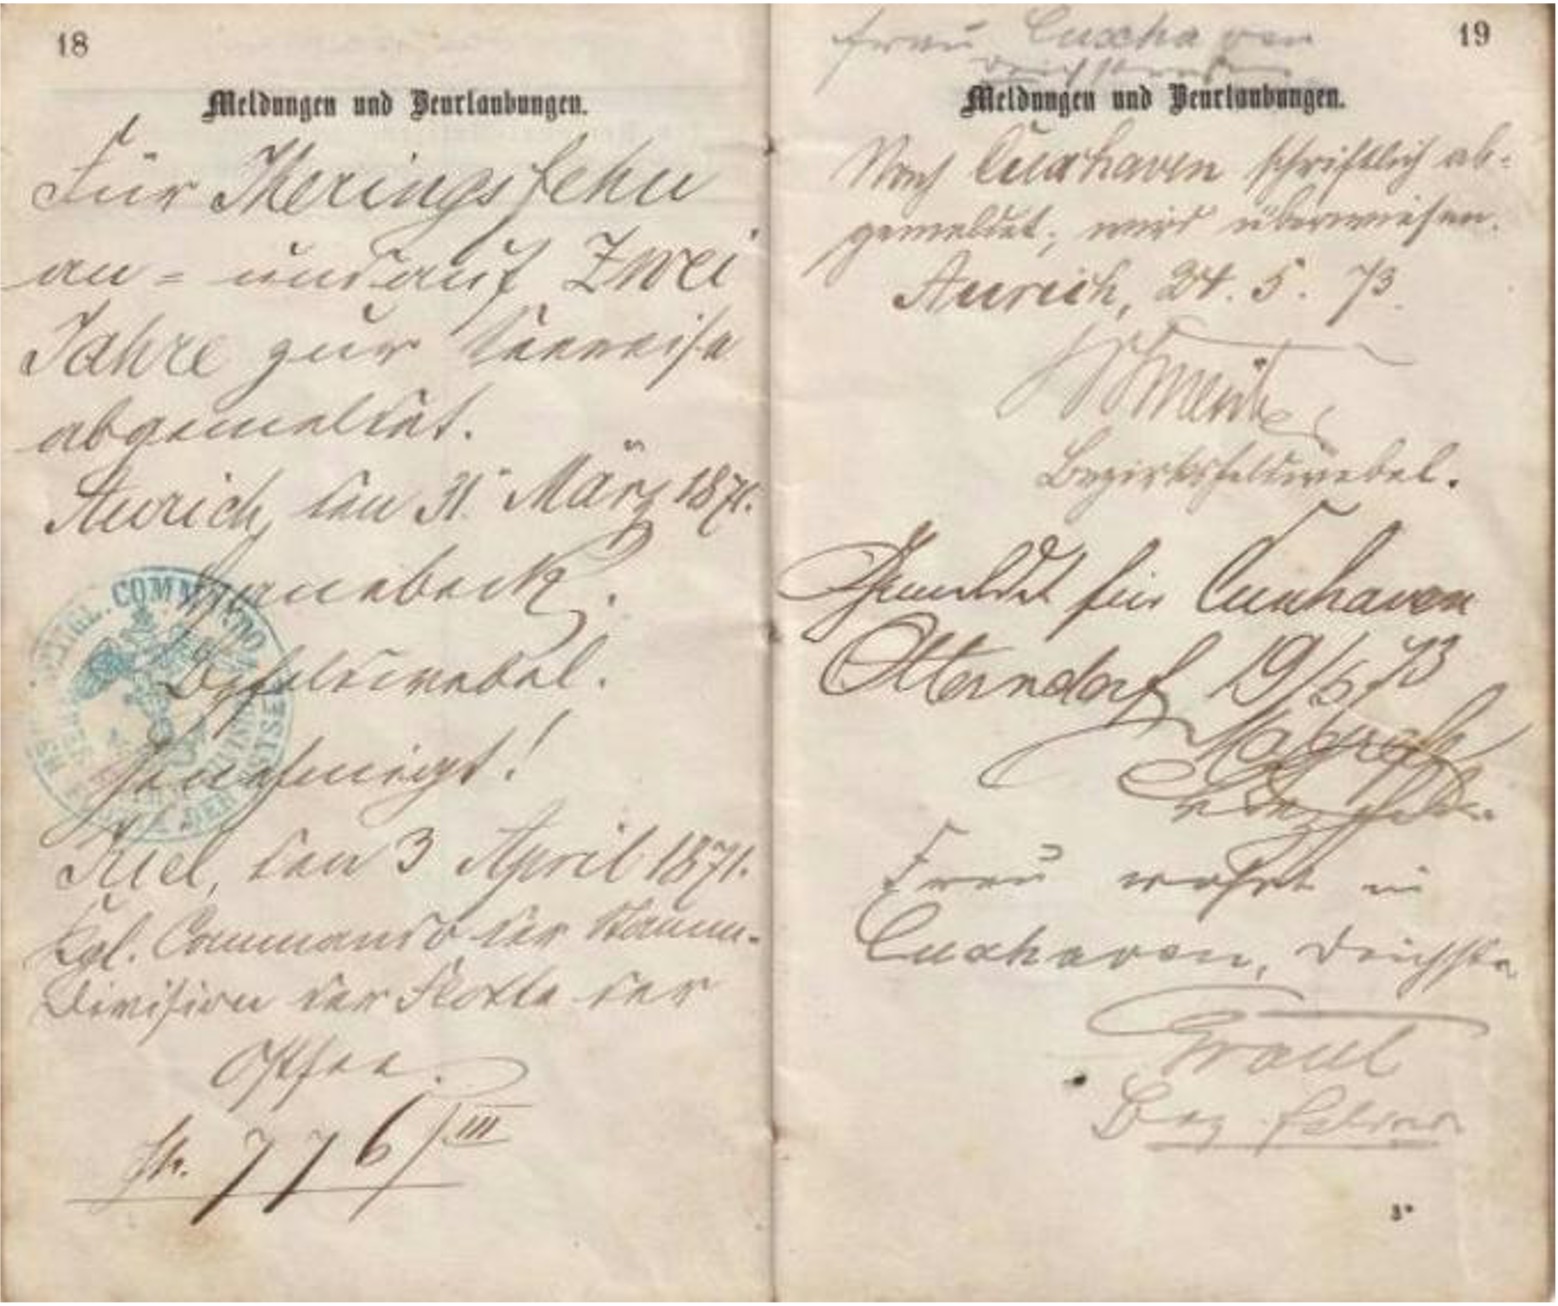 18
Meldungen und Beurlaubungen.
Für Iheringsfehn
an- und auf Zwei
Jahre zur Seereise
abgemeldet.
Aurich, den 31. März 1871.
Bzfeldwebel.
COMMANDO
Genehmigt!
Kiel, den 3 April 1871.
Kgl. Commando der Stamm-
Division der Flotte der
Ostsee.
776/III
19
Frau Cuxhaven
Deichstrasse
Meldungen und Beurlaubungen.
Nach Cuxhaven schriftlich ab-
gemeldet, wird überwiesen.
Aurich, 24. 5. 73.
Bezirksfeldwebel.
Gemeldet für Cuxhaven
Otterndorf 19/6 73
Frau wohnt in
Cuxhaven, Deichstr
Bez. Feldw.
3*